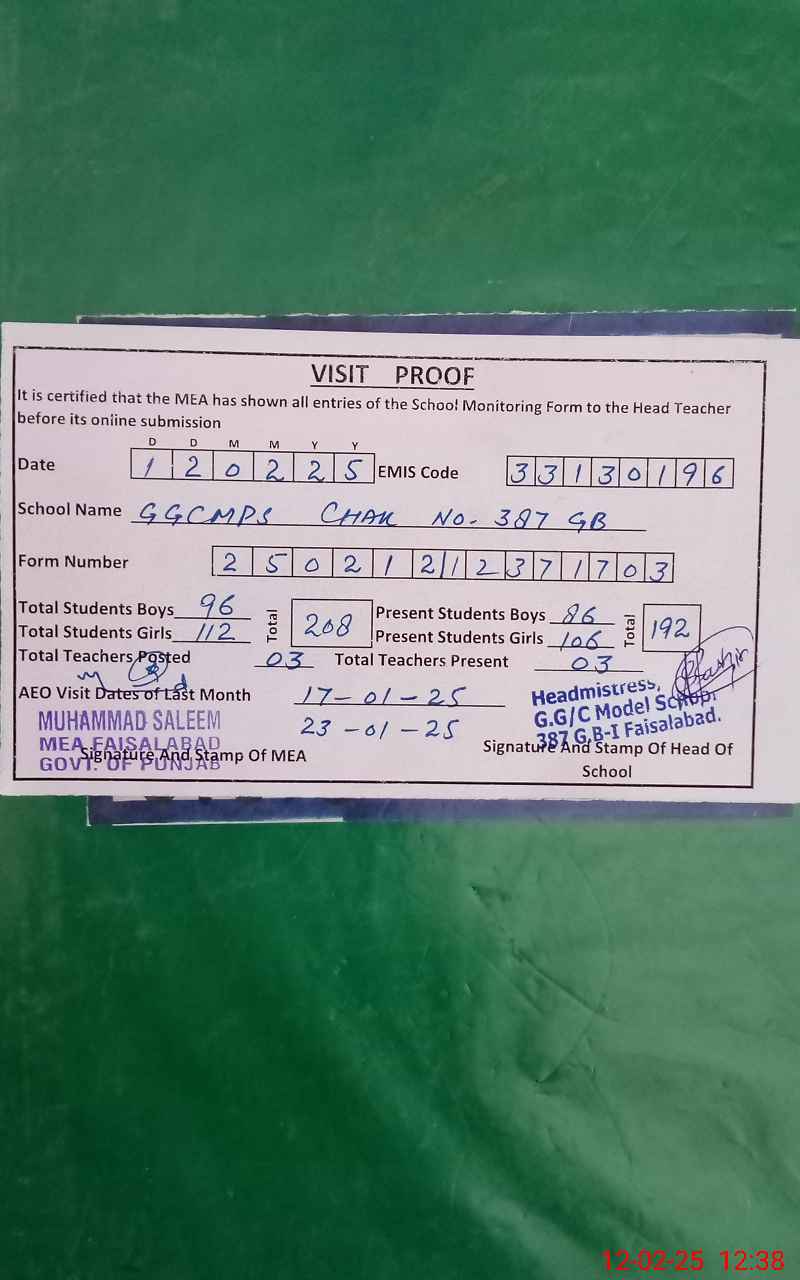 VISIT PROOF
It is certified that the MEA has shown all entries of the School Monitoring Form to the Head Teacher
before its online submission
D D M M Y Y
Date 1 2 0 2 2 5 EMIS Code 3 3 1 3 0 1 9 6
School Name GGCMPS CHAK NO. 387 GB
Form Number 2 5 0 2 1 2 1 2 3 7 1 7 0 3
Total Students Boys 96 Total 208 Present Students Boys 86 Total 192
Total Students Girls 112 Present Students Girls 106
Total Teachers Posted 03 Total Teachers Present 03
AEO Visit Dates of Last Month 17-01-25
23-01-25
MUHAMMAD SALEEM
MEA FAISALABAD
GOVT. OF PUNJAB
Signature And Stamp Of MEA
Headmistress,
G.G/C Model School
387 G.B-I Faisalabad.
Signature And Stamp Of Head Of
School
12-02-25 12:38